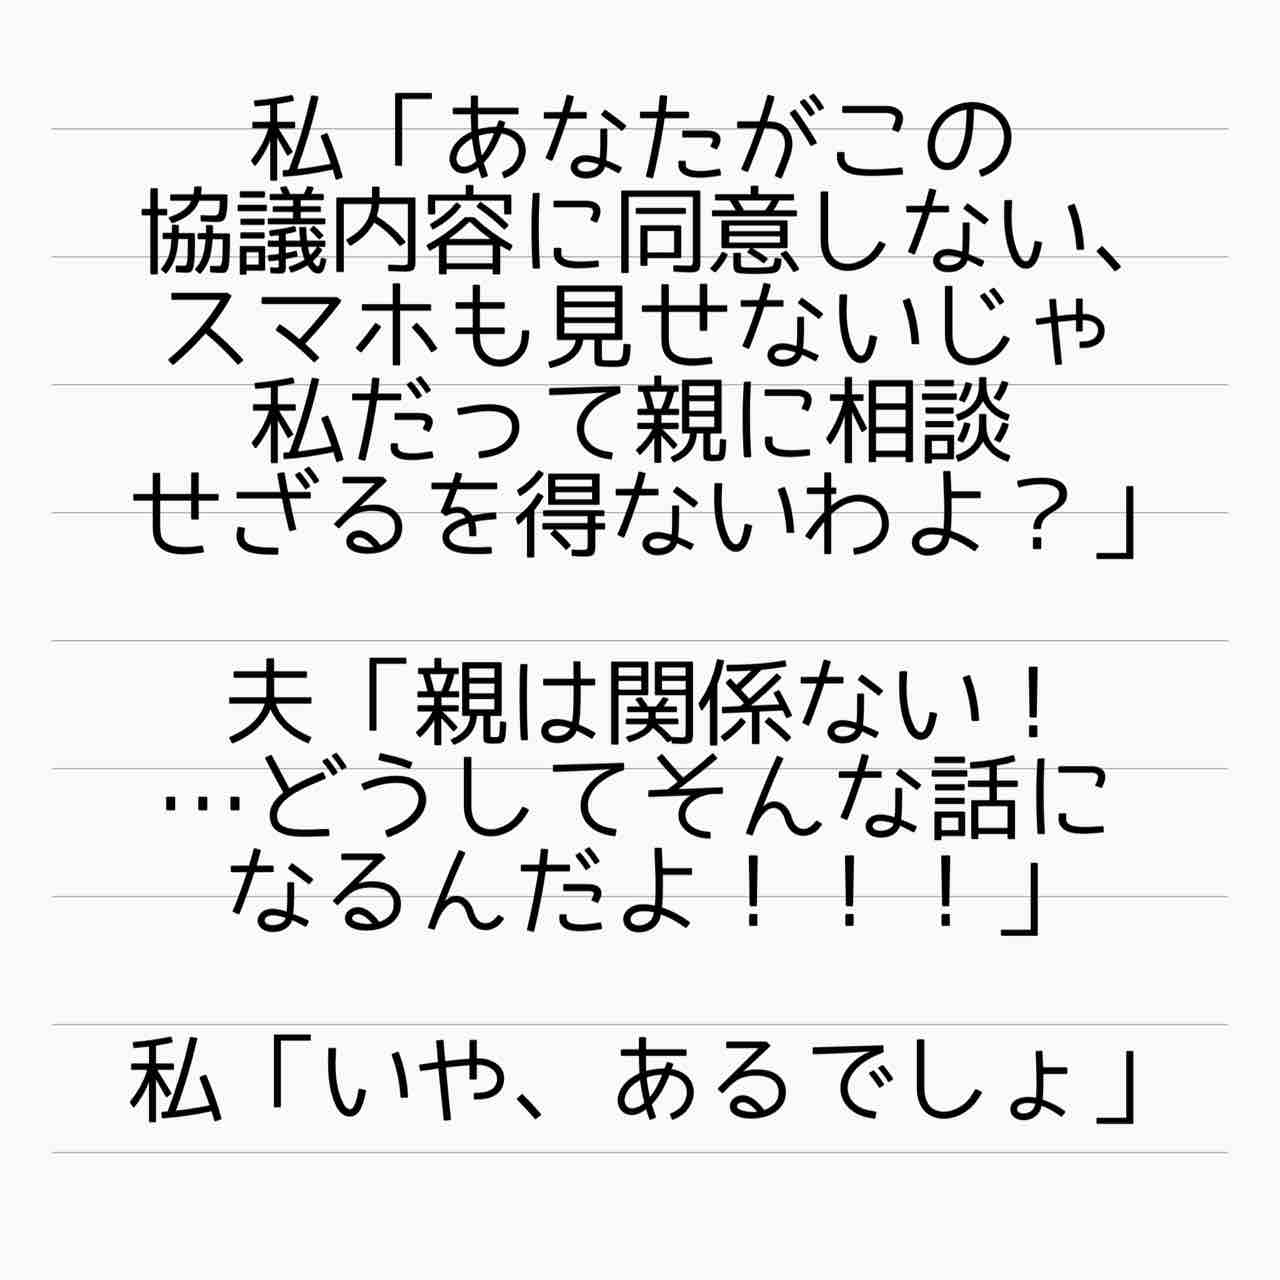 私「あなたがこの
協議内容に同意しない、
スマホも見せないじゃ
私だって親に相談
せざるを得ないわよ？」
夫「親は関係ない！
…どうしてそんな話に
なるんだよ！！！」
私「いや、あるでしょ」